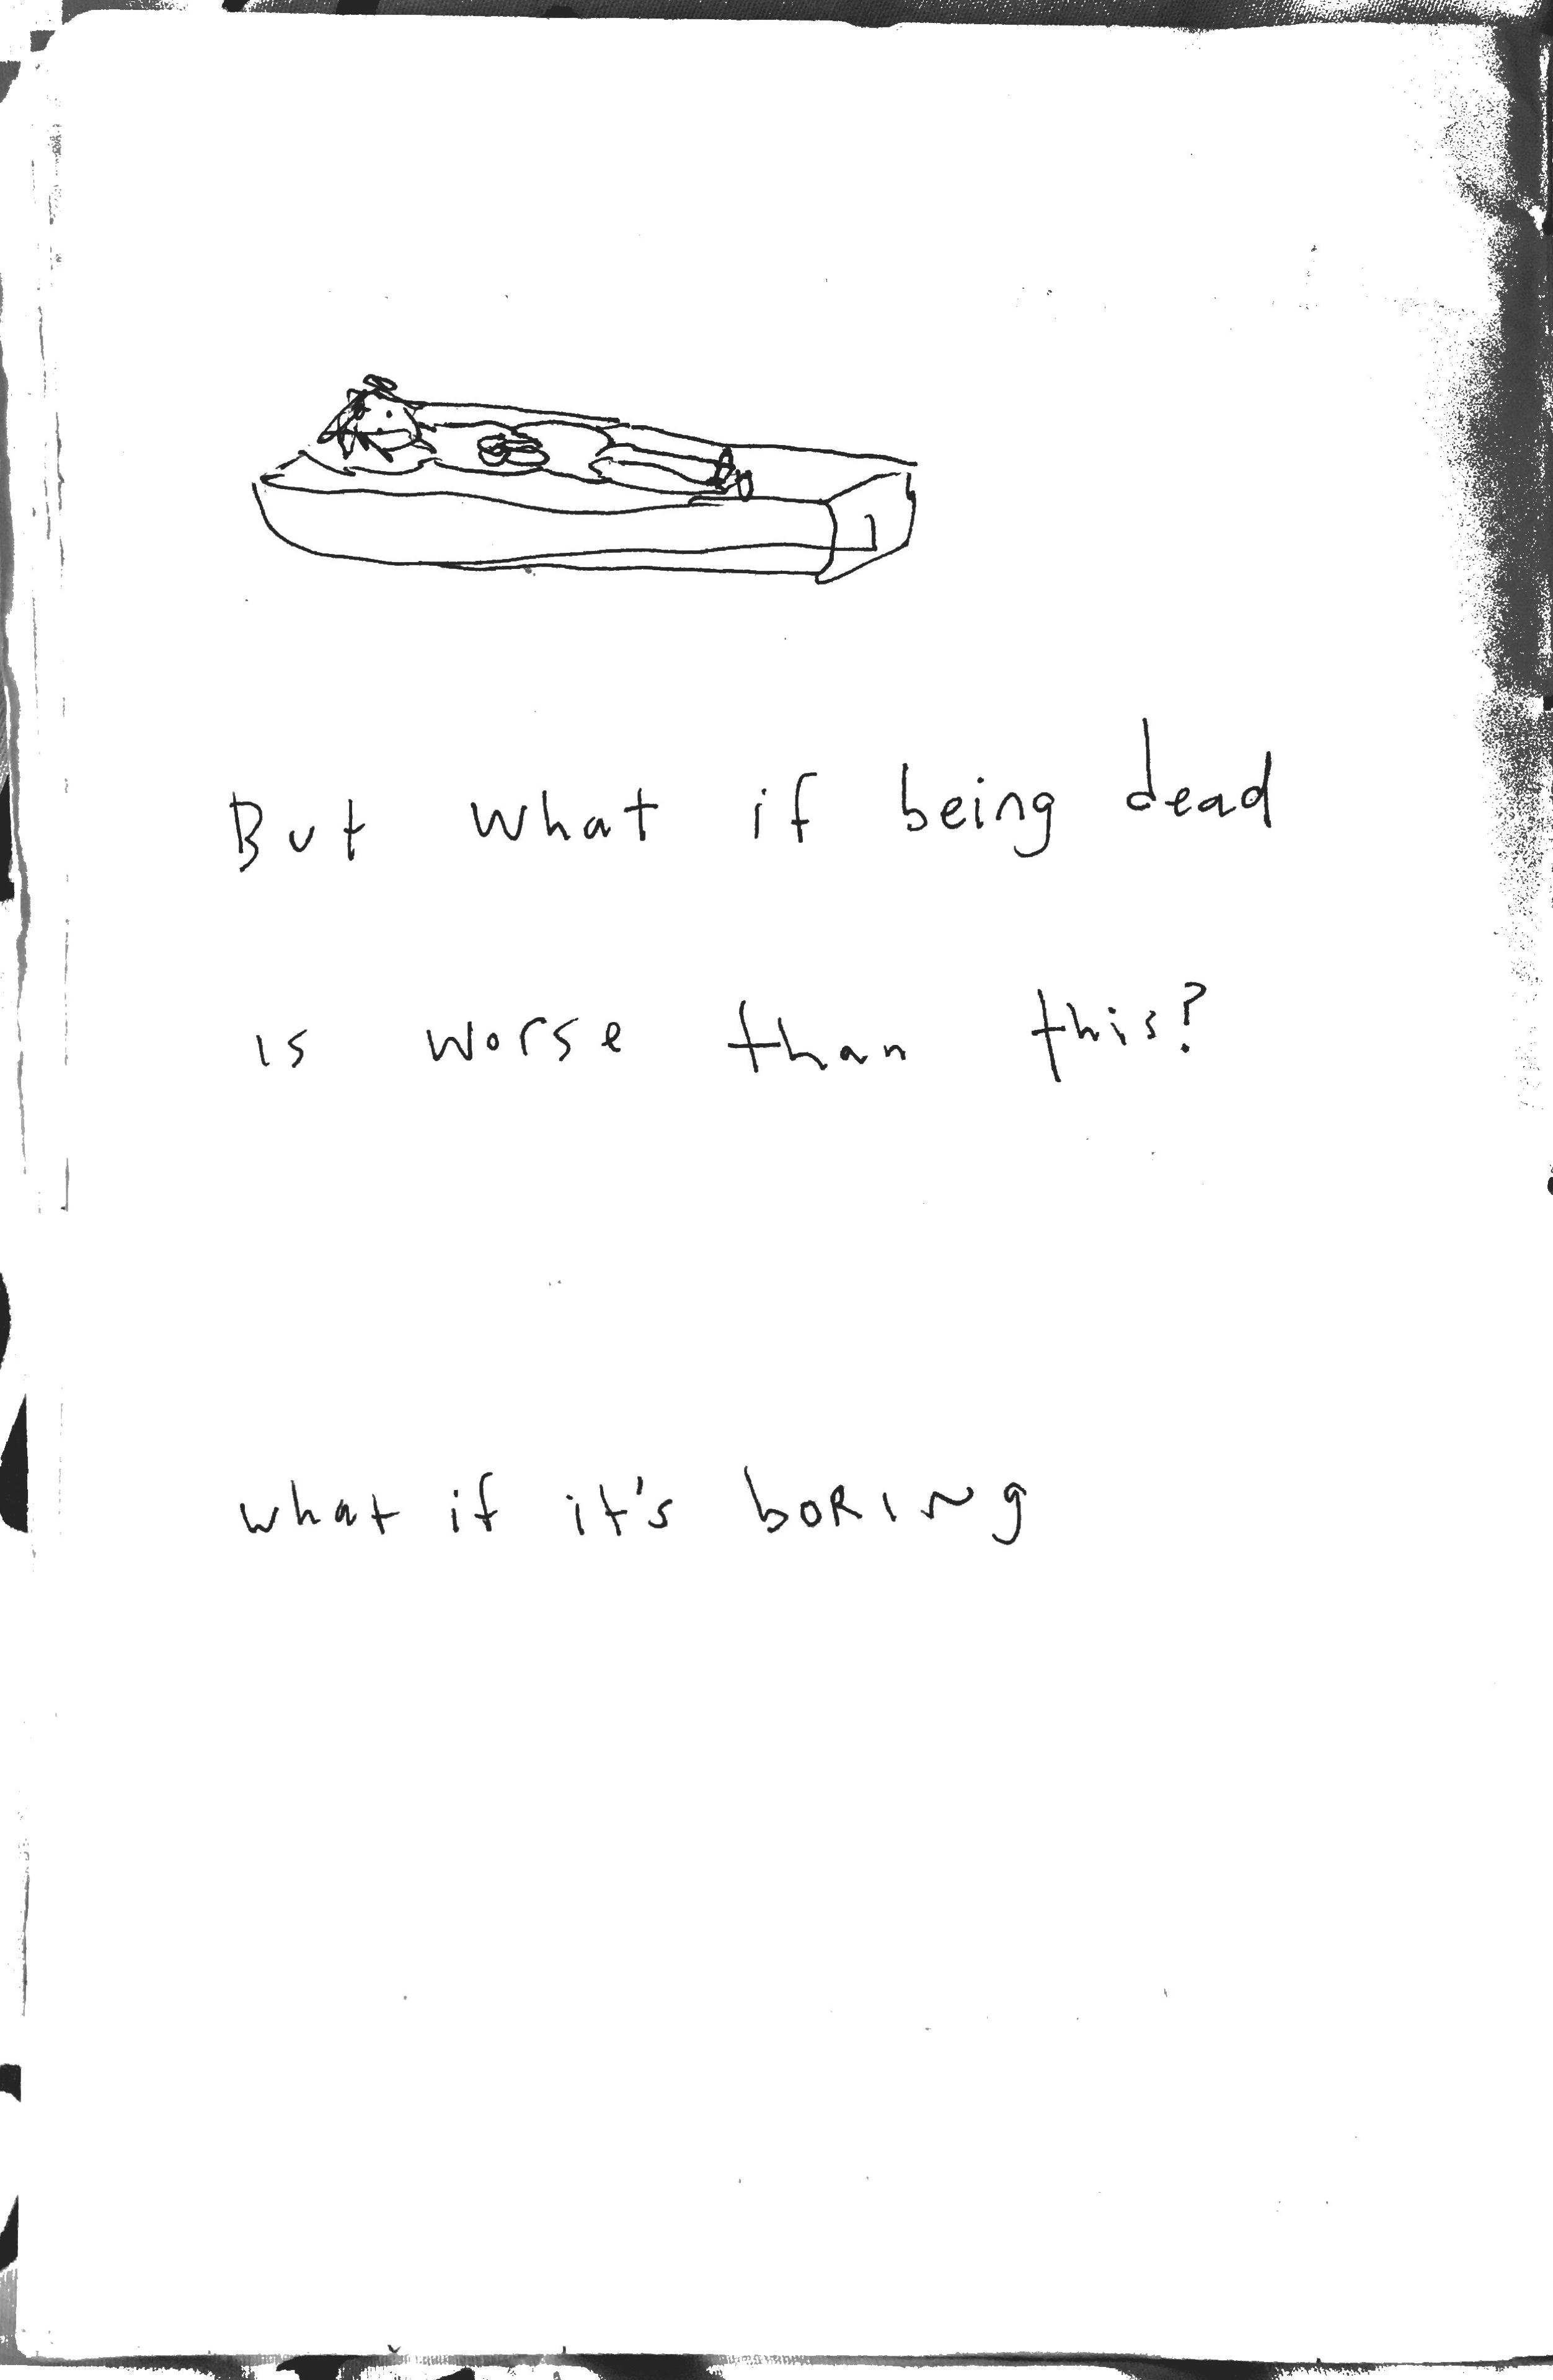 But what if being dead
is worse than this?
what if it's boRing